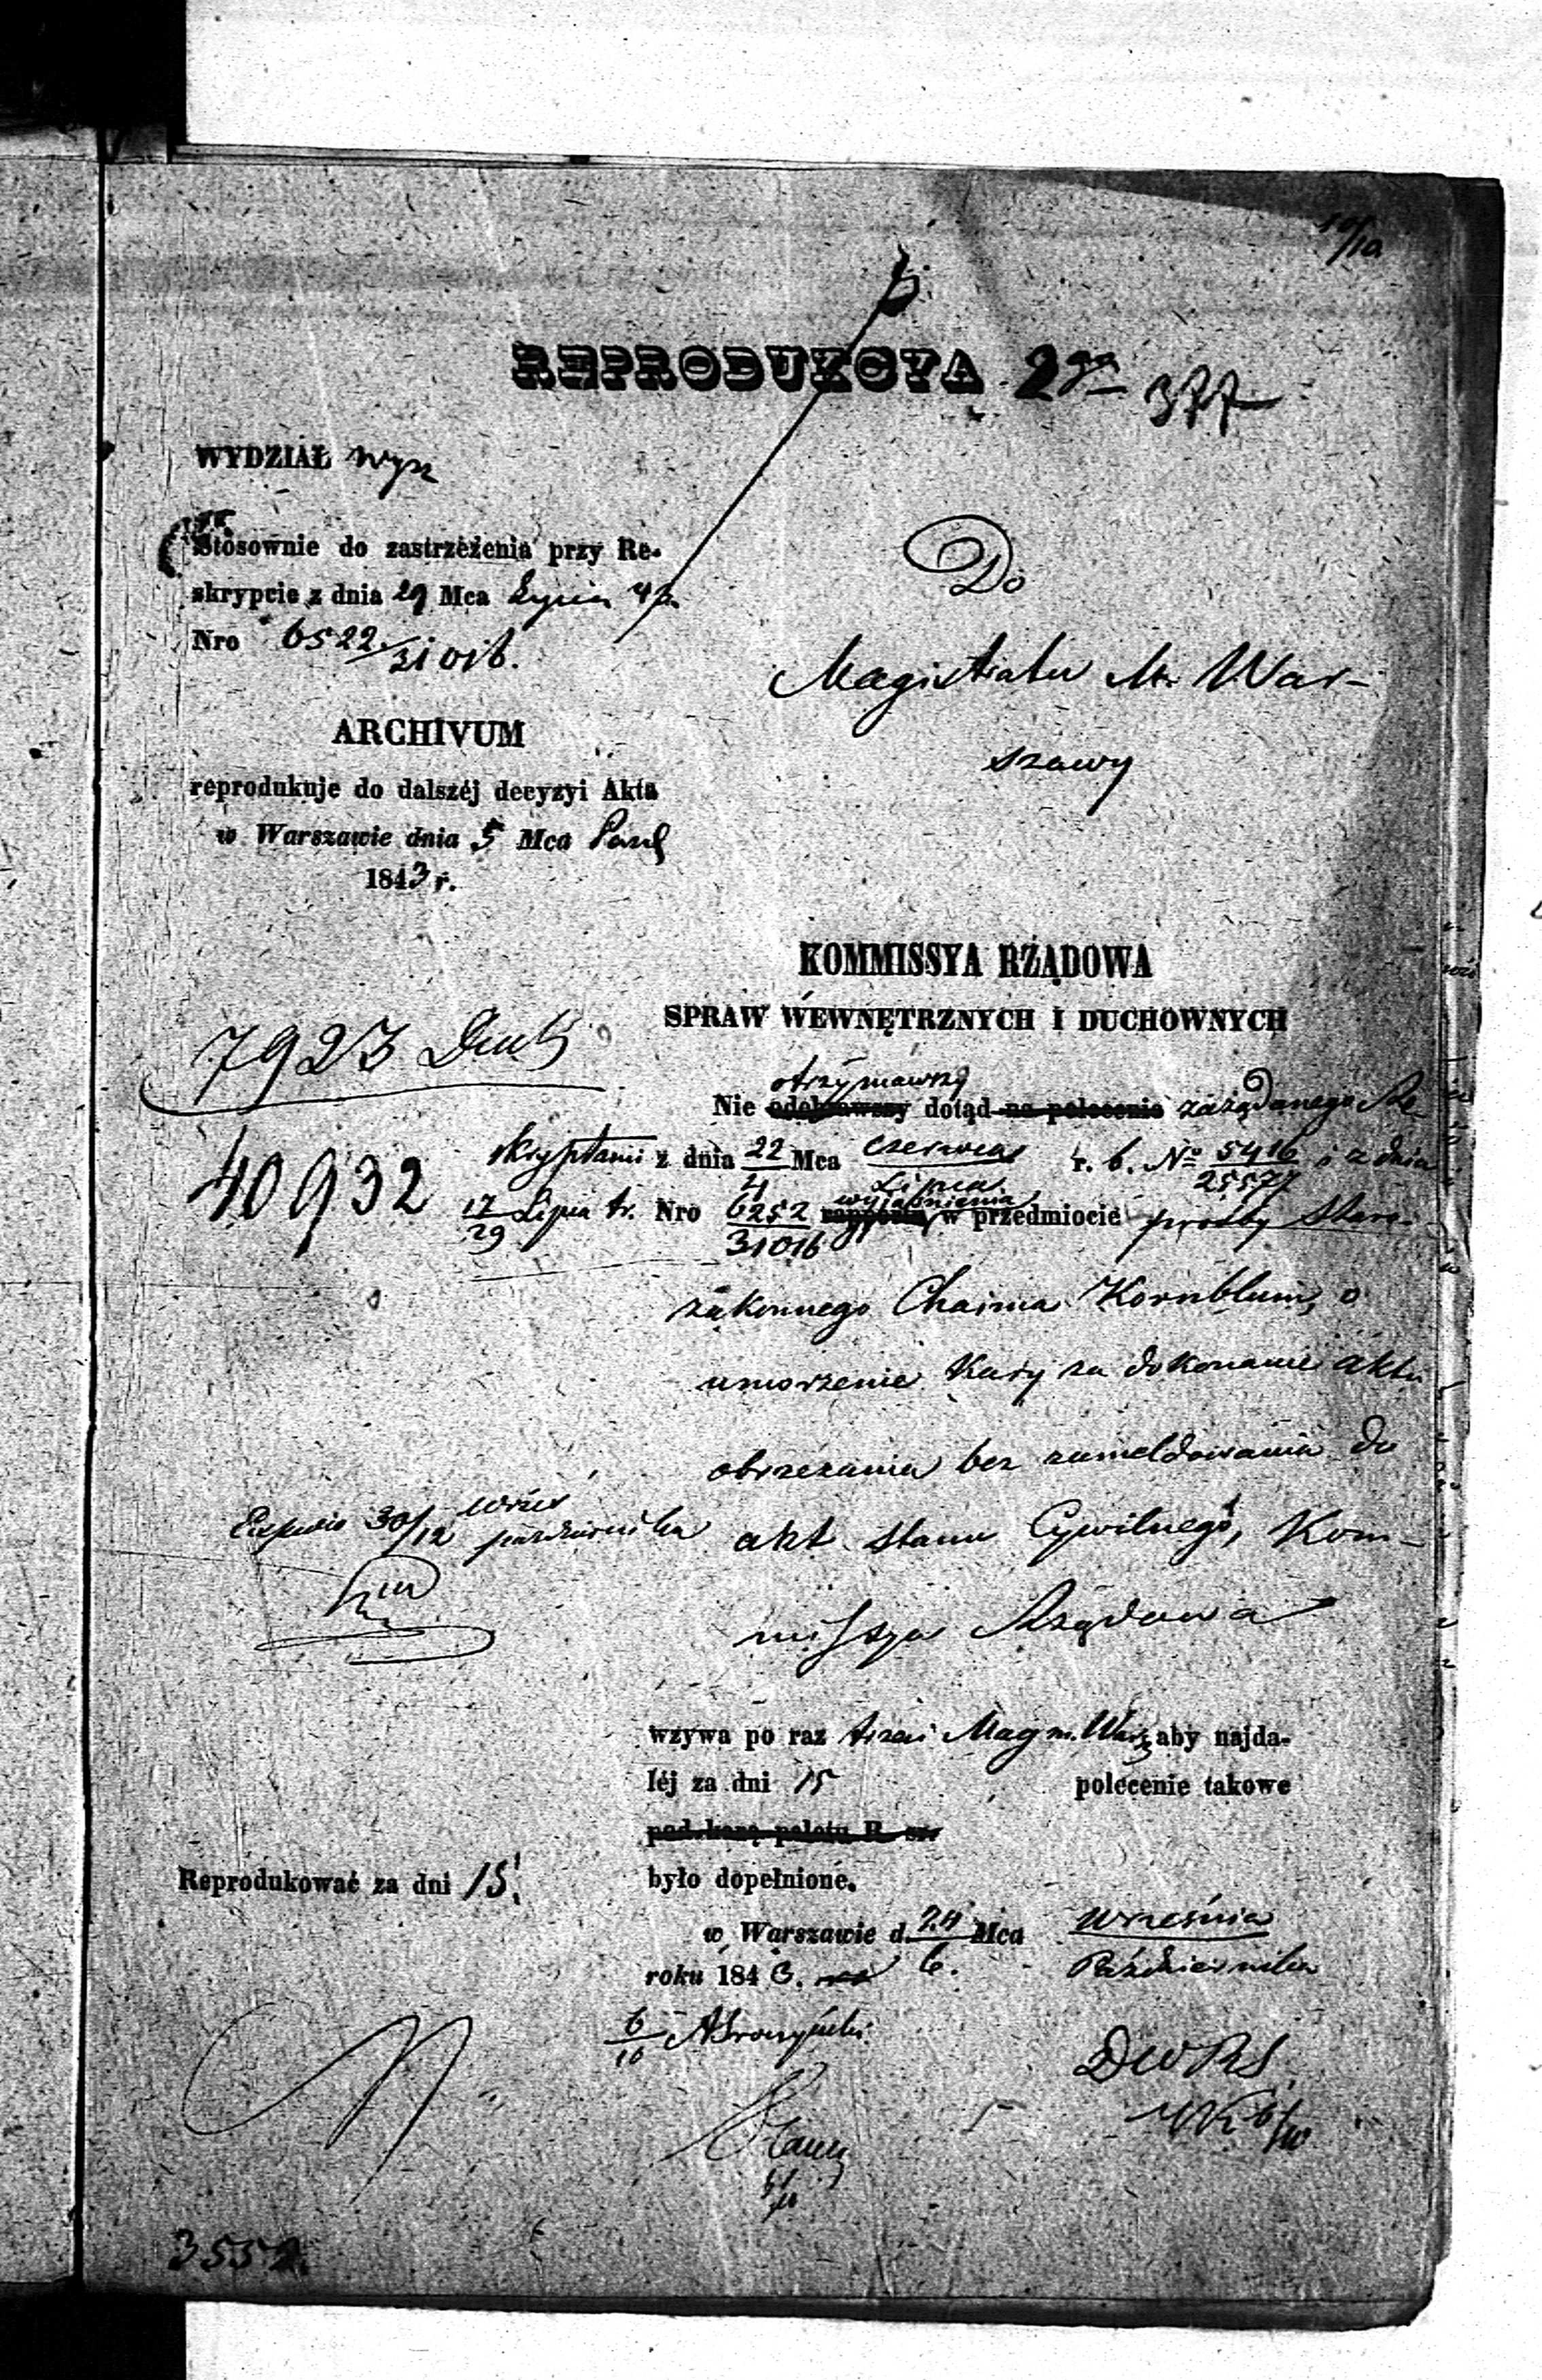 10/10
REPRODUKCYA 2ga
377
WYDZIAŁ Wyzn
Stosownie do zastrzeżenia przy Re-
skrypcie z dnia 29 Mca Lipca 43
Nro 6522/31016.
Do
Magistratu M. War-
szawy
ARCHIVUM
reprodukuje do dalszéj decyzyi Akta
w Warszawie dnia 5 Mca Paźd
1843 r.
KOMMISSYA RZĄDOWA
SPRAW WEWNĘTRZNYCH I DUCHOWNYCH
7923
40932
otrzymawszy
Nie odebrawszy dotąd na polecenie zażądanego Re-
skryptami z dnia 22/4 Mca Czerwca/Lipca r. b. No 5416/25577 i z dnia
17/29 Lipca t.r. Nro 6252/31016 rapportu wyjaśnienia w przedmiocie prośby Staro-
zakonnego Chaima Kornblum, o
umorzenie kary za dokonanie aktu
obrzezania bez zameldowania do
akt stanu Cywilnego, Kom-
missya Rządowa
30/12 Wrześ października
wzywa po raz trzeci Mag m. Warsz aby najda-
léj za dni 15 polecenie takowe
pod karą
było dopełnione.
Reprodukować za dni 15.
w Warszawie d. 24 Mca Września
roku 1843. 6. Października
6/10
DWRS
6/10
3552.